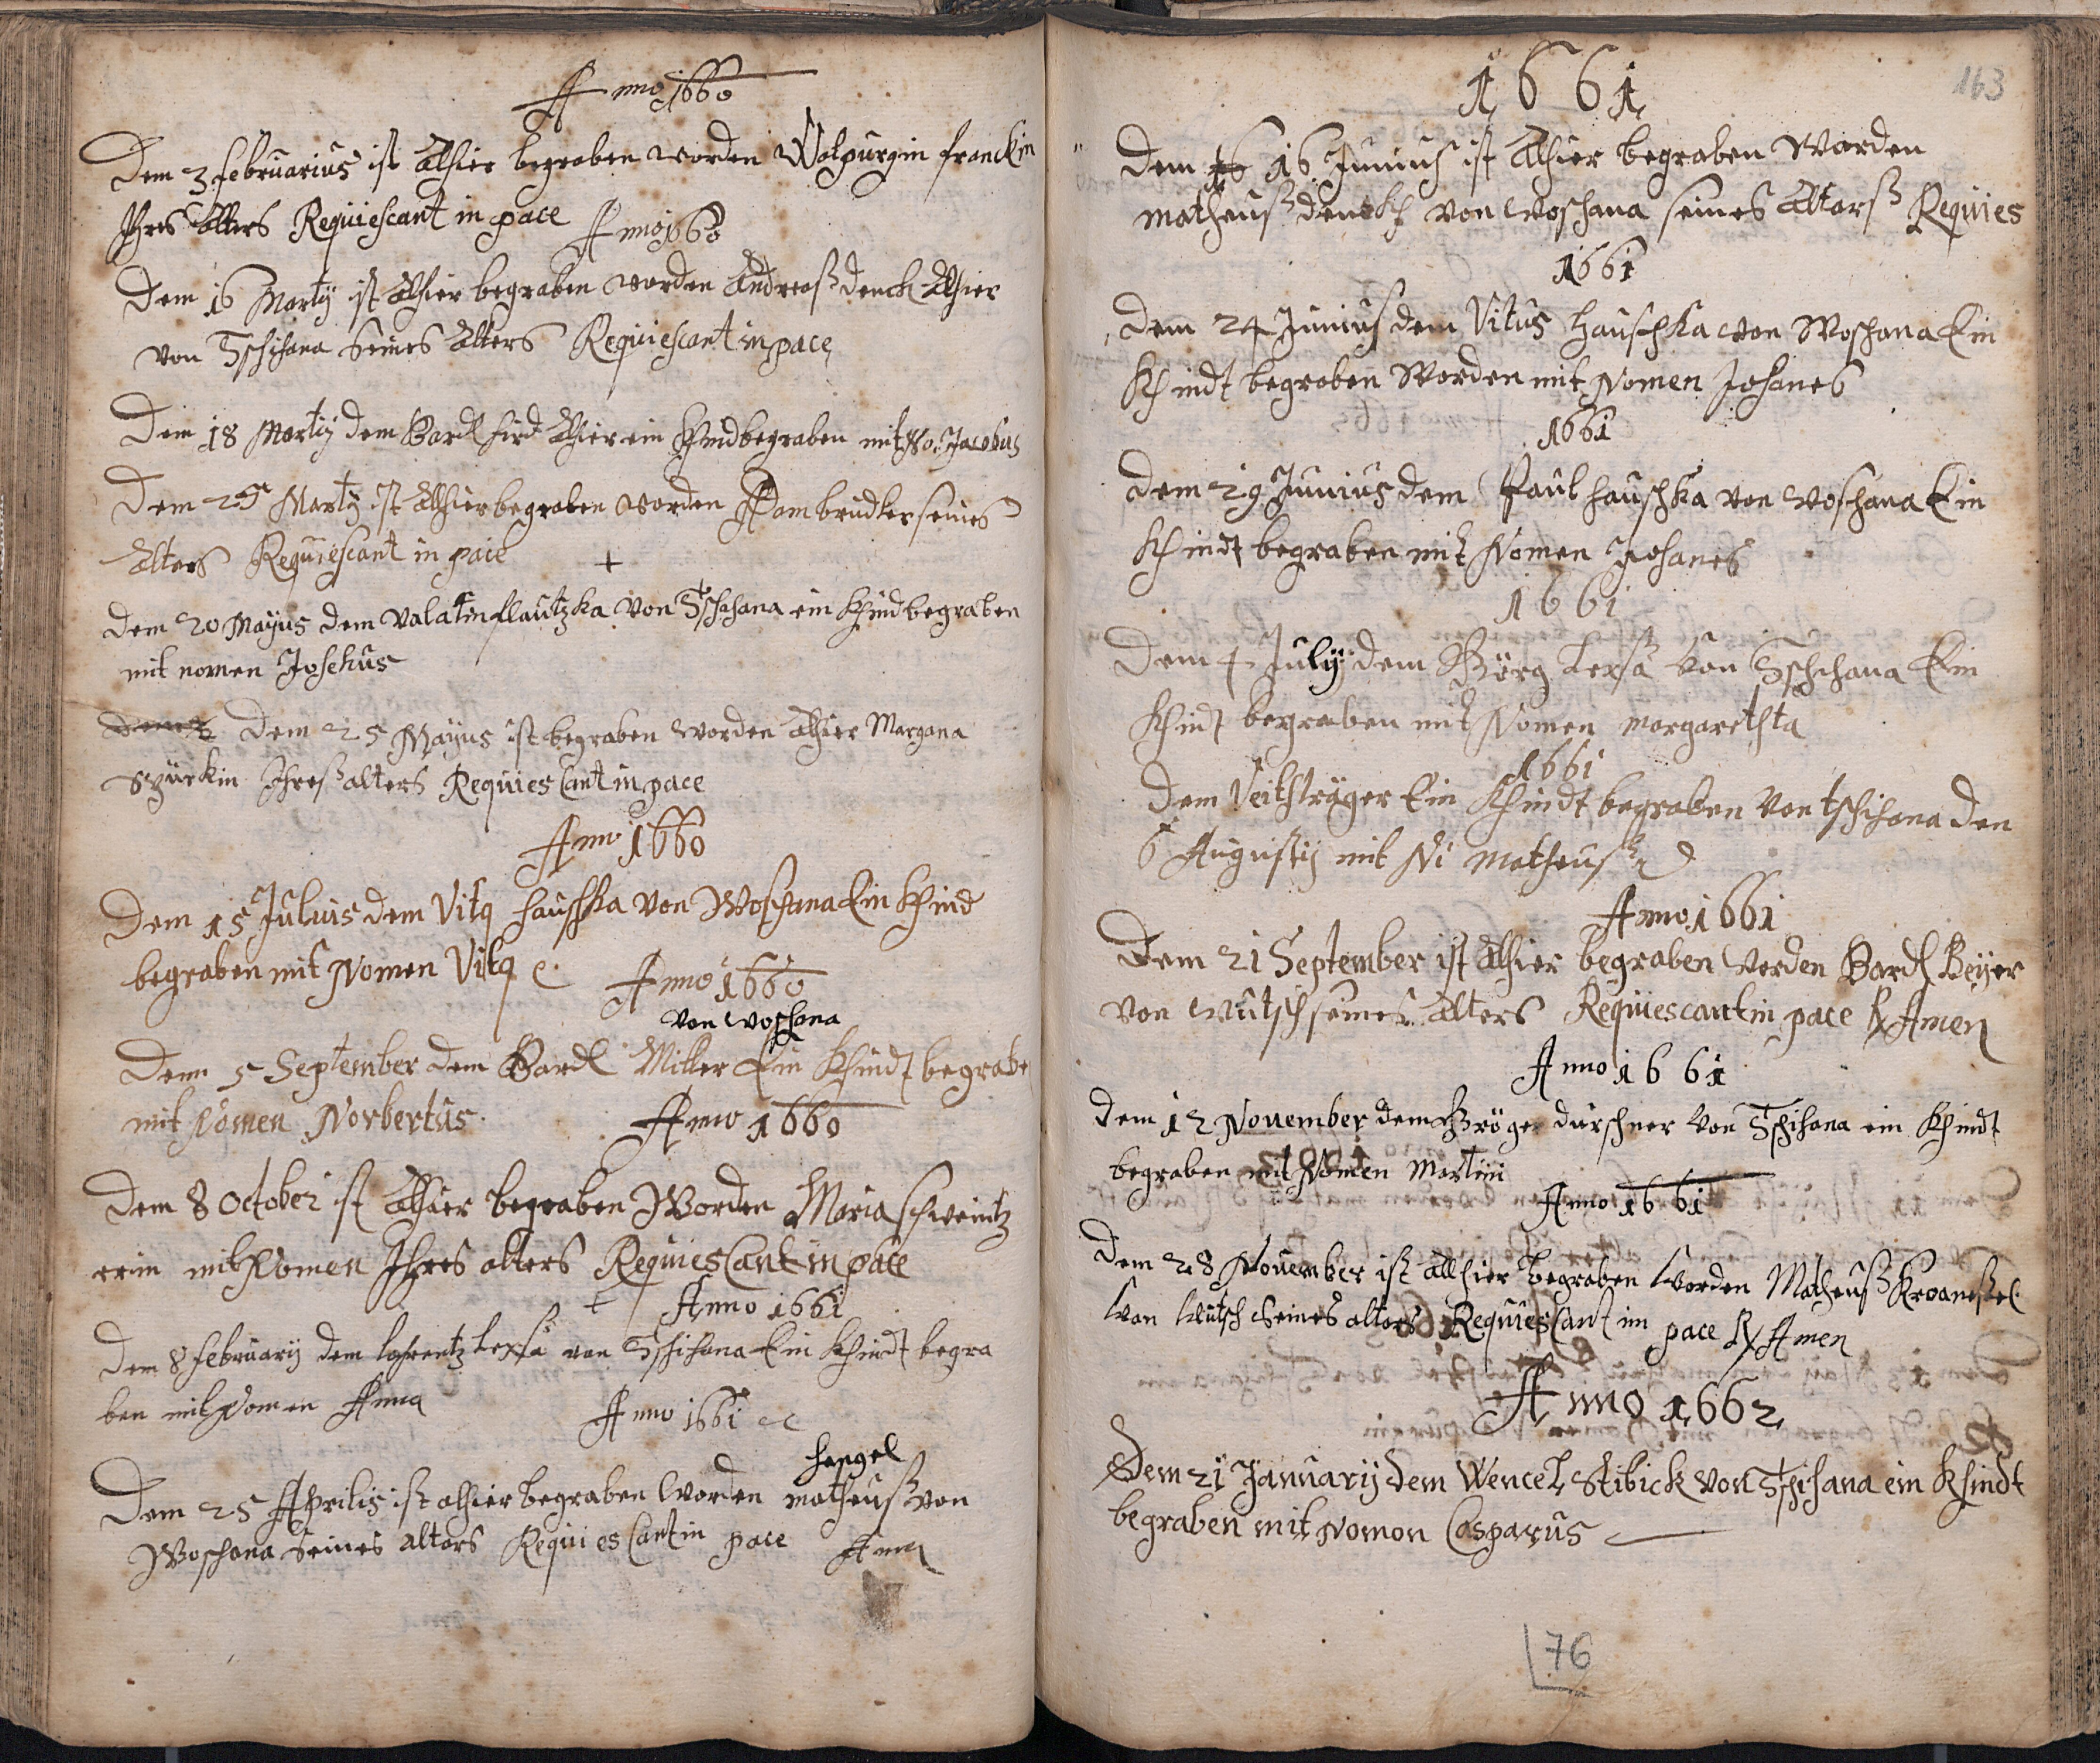 Anno 1660
Dem 3 februarius ist Alhier begraben worden Walpurgin franckin
Ihres Alters Requiescant in pace
Anno 1660
Dem 16 Martij ist Alhier begraben worden Andreaß denck Alhier
von Tschihana Seines Alters Requiescant in pace
Dem 18 Martij dem Bardl hird Alhier ein Khind begraben mit No. Jacobus
Dem 25 Martij ist Alhier begraben worden Adam brudler seines
Alters Requiescant in pace +
Dem 20 Mayus dem Valatin flautzka von Tschihana ein Khind begraben
mit nomen Josehus
Dem 25 Mayus ist begraben worden Alhier Margana
Ihreß alters Requies Cant in pace
Anno 1660
Dem 15 Julius dem Vitq hauschka von Woschana Ein Khind
begraben mit Nomen Vitq e.
Anno 1660
von woschana
Dem 5 September dem Bardl Miller Ein Khindt begrabe
mit Nomen Norbertus.
Anno 1660
Dem 8 October ist Alhier begraben Worden Maria schweintz
erin mit Nomen Ihres alters Requies Cant in pace
+ Anno 1661
Dem 8 february dem lohrentz Lexsa von Tschihana Ein Khindt begra
ben mit Nomen Anna
Anno 1661
hengel
Dem 25 Aprilis ist alhier begraben worden matheuß von
Woschana Seines alters Requies Cant in pace Amen
163
1661
Dem 16 16 Junius ist Alhier begraben Worden
matheuß denckh von woschana seines Alters Requies
1661
Dem 24 Junius dem Vitus Hauschka von Woschana Ein
Khindt begraben Worden mit Nomen Johanes
1661
Dem 29 Junius dem Paul hauschka von woschana Ein
Khindt begraben mit Nomen Johanes
1661
Dem 4 Julij dem Görg Lexsa von Tschihana Ein
Khindt begraben mit Nomen margarethta
1661
Dem Veit Ein Khindt begraben von tschihana den
6 Augustij mit Ni Matheus
Anno 1661
Dem 21 September ist Alhier begraben Worden Bardl Beyer
von Wutsch seines Alters Requiescant in pace Amen
Anno 1661
Dem 12 November dem durschner von Tschihana ein Khindt
begraben mit Nomen Martin
Anno 1661
Dem 28 November ist allhier begraben worden Matheuß
von Wutsch Seines alters Requies Cant in pace Amen
Anno 1662
Dem 21 Januarij dem Wencel Stibick von Tschihana ein Khindt
begraben mit Nomen Casparus
76